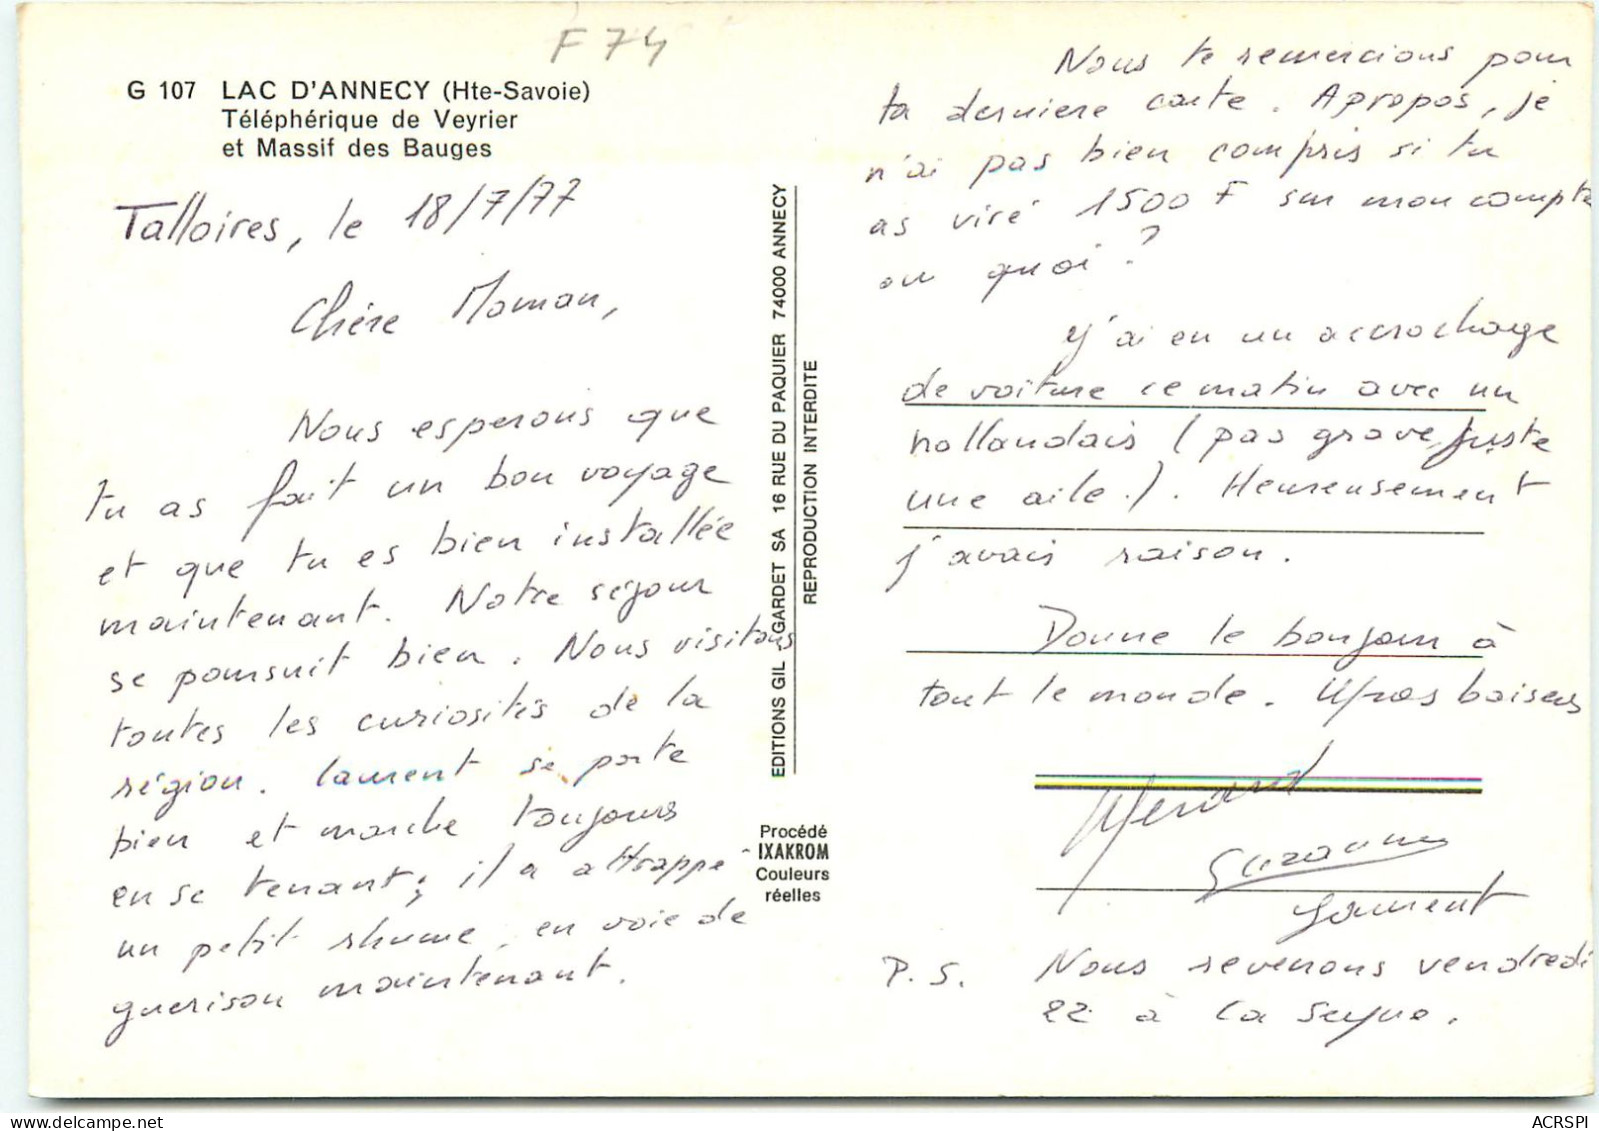 F 74
G 107 LAC D'ANNECY (Hte-Savoie)
Téléphérique de Veyrier
et Massif des Bauges
Talloires, le 18/7/77
Chère Maman,
Nous esperons que
tu as fait un bon voyage
et que tu es bien installée
maintenant. Notre séjour
se poursuit bien. Nous visitons
toutes les curiosités de la
région. Laurent se porte
bien et marche toujours
en se tenant; il a attrappé
un petit rhume, en voie de
guerison maintenant.
EDITIONS GIL - GARDET SA 16 RUE DU PAQUIER 74000 ANNECY
REPRODUCTION INTERDITE
Procédé
IXAKROM
Couleurs
réelles
Nous te remercions pour
ta derniere carte. Apropos, je
n'ai pas bien compris si tu
as viré 1500 F sur mon compte
ou quoi?
J'ai eu un accrochage
de voiture ce matin avec un
hollandais (pas grave, juste
une aile.). Heureusement
j'avais raison.
Donne le bonjour à
tout le monde. Gros baisers
Suzanne
Laurent
P.S. Nous revenons vendredi
22 à La Seyne.
ACRSPI